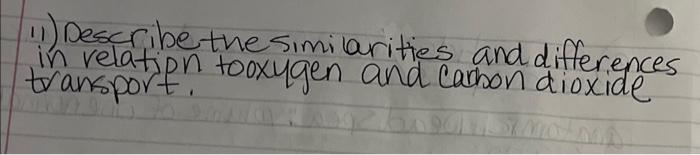 11) Describe the similarities and differences
in relation to oxygen and carbon dioxide
transport.